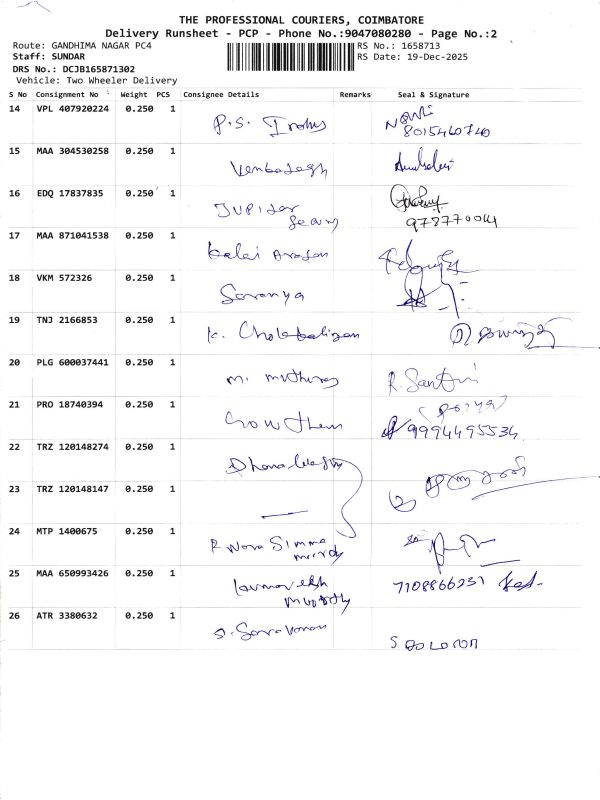 THE PROFESSIONAL COURIERS, COIMBATORE
Delivery Runsheet - PCP - Phone No.:9047080280 - Page No.:2
Route: GANDHIMA NAGAR PC4 RS No.: 1658713
Staff: SUNDAR RS Date: 19-Dec-2025
DRS No.: DCJB165871302
Vehicle: Two Wheeler Delivery
S No Consignment No Weight PCS Consignee Details Remarks Seal & Signature
14 VPL 407920224 0.250 1 P.S.
8015460740
15 MAA 304530258 0.250 1 Venkatesh
16 EDQ 17837835 0.250 1 Jupiter
17 MAA 871041538 0.250 1 Kalai Arasan
18 VKM 572326 0.250 1 Saranya
19 TNJ 2166853 0.250 1 K.
20 PLG 600037441 0.250 1 M. R. Santhi
21 PRO 18740394 0.250 1 Gowtham
9994495534
22 TRZ 120148274 0.250 1
23 TRZ 120148147 0.250 1
24 MTP 1400675 0.250 1 R
25 MAA 650993426 0.250 1 7108866231
26 ATR 3380632 0.250 1 S. Saravanan